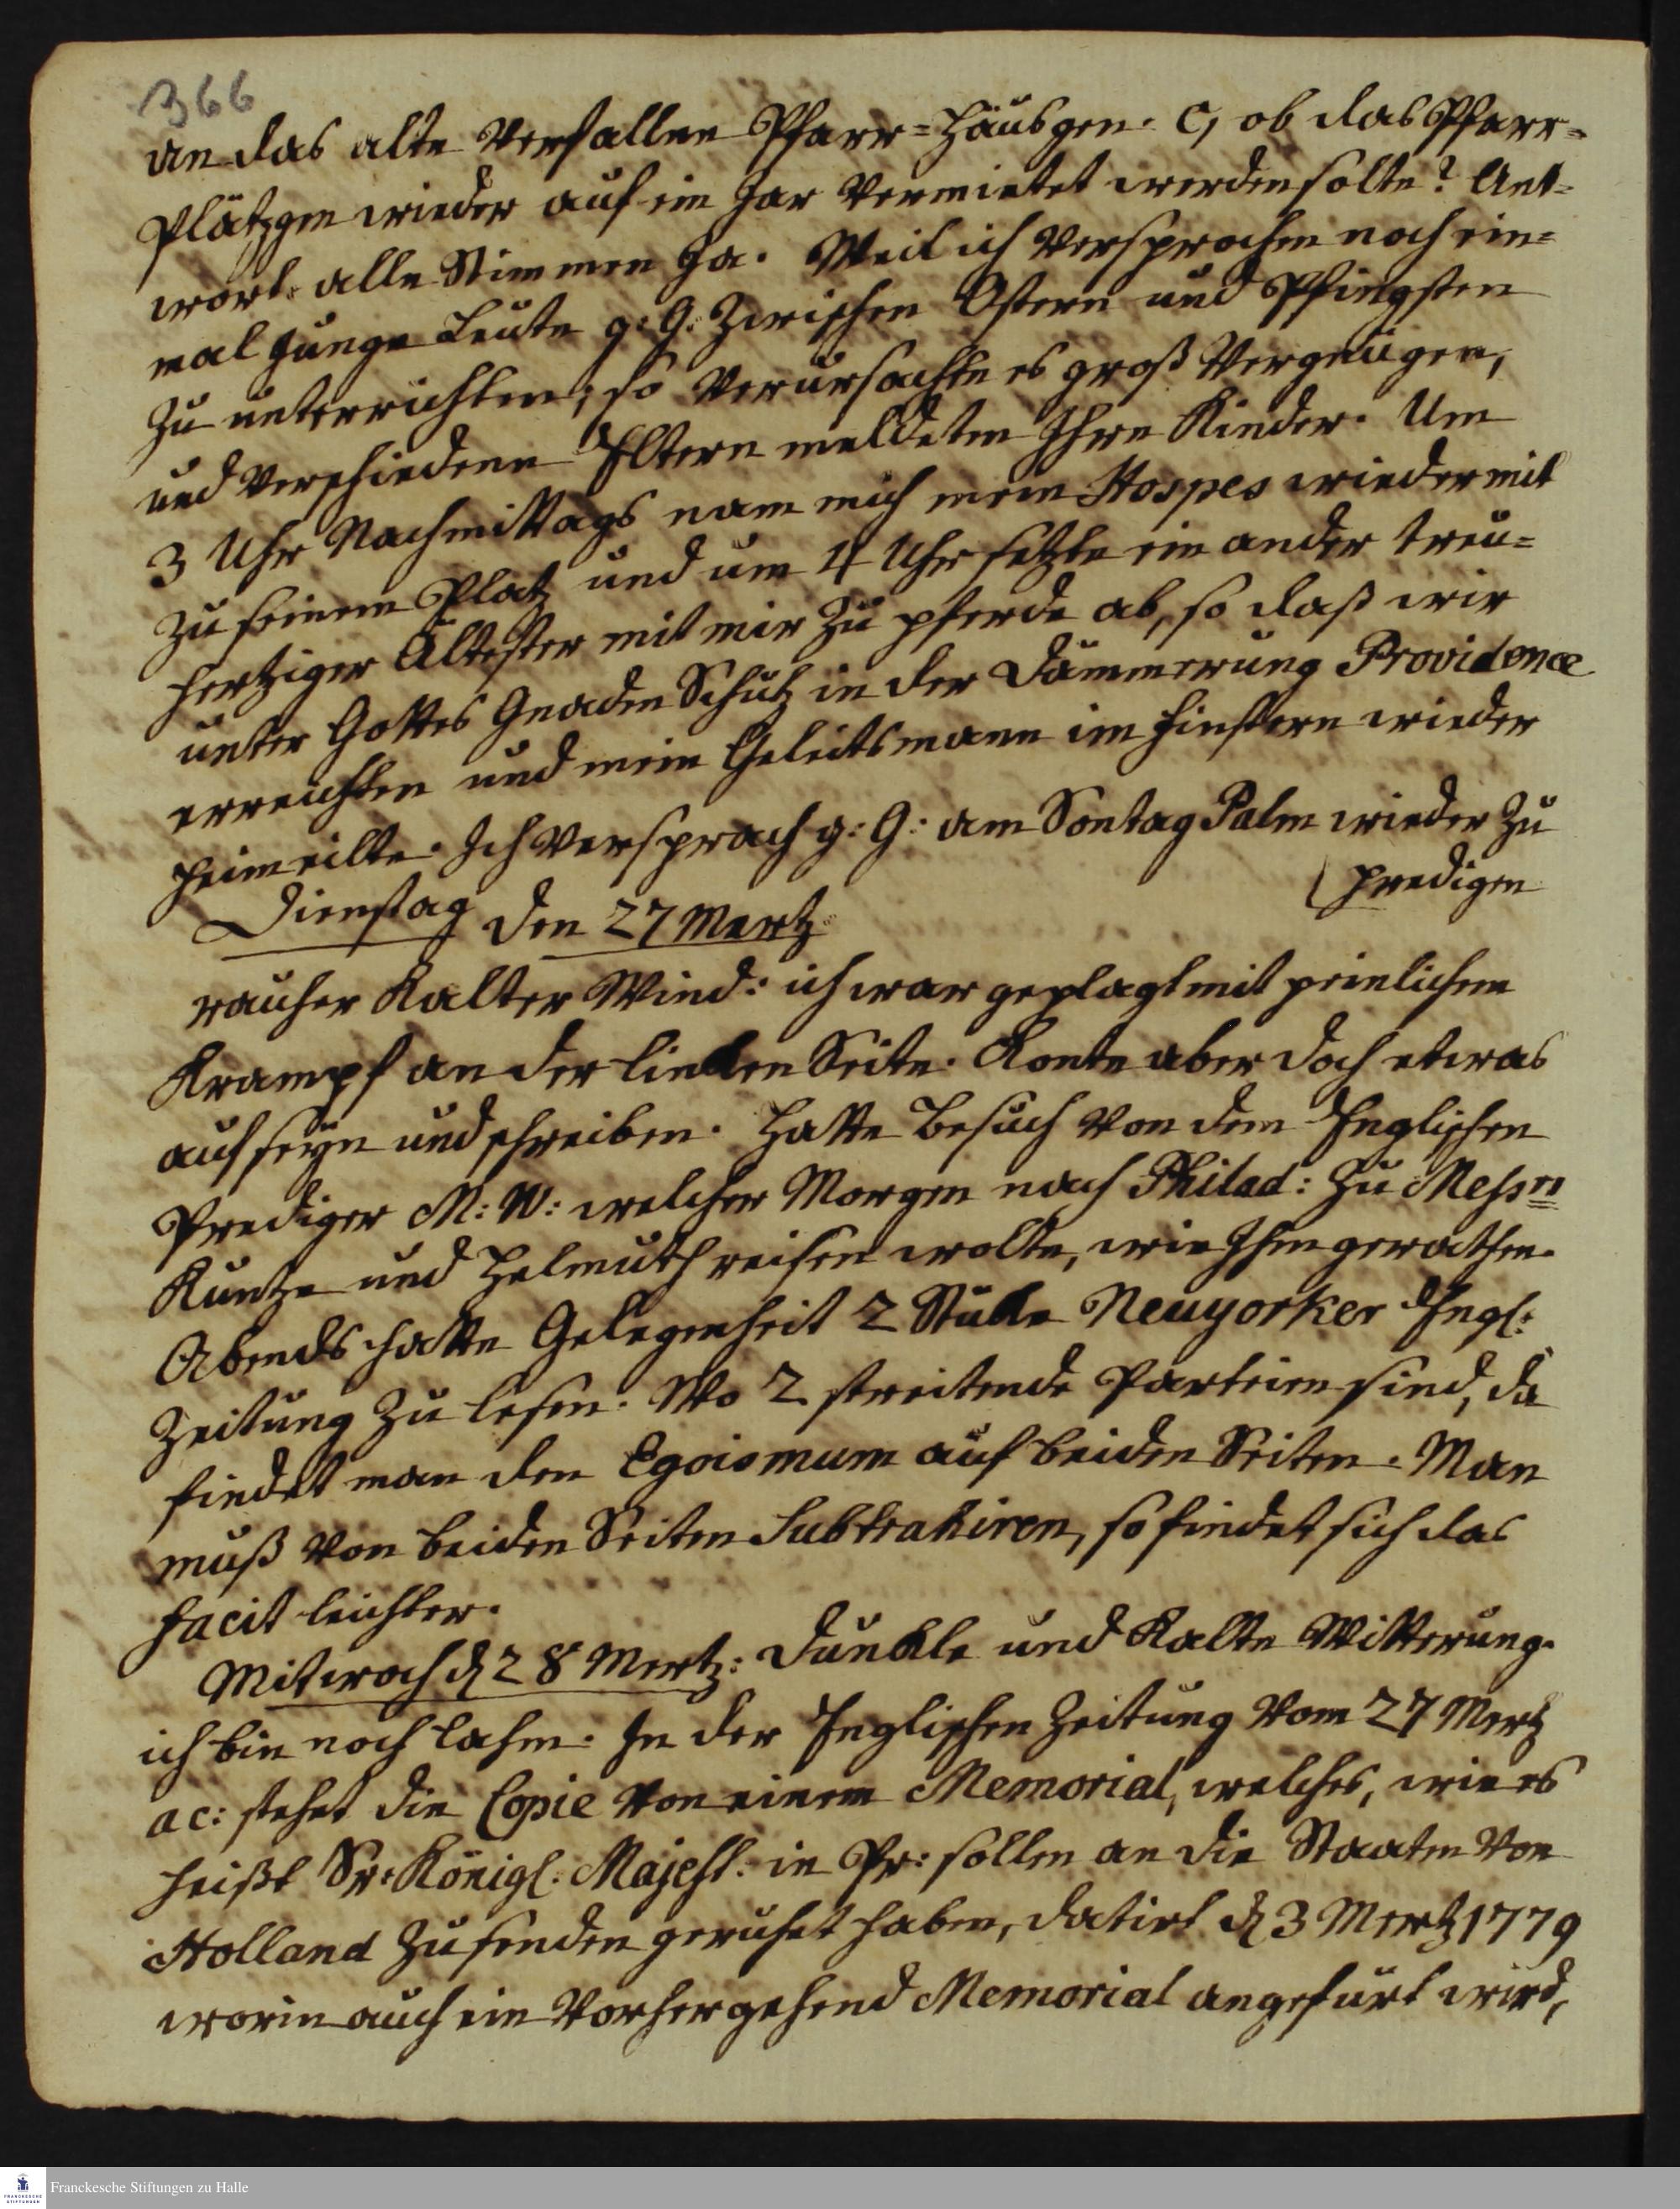 366
an das alte verfallene Pfarr=Häusgen. c, ob das Pfarr=
Plätzgen wieder auf ein Jar vermietet werden solte? Ant=
wort. alle Stimmen Ja. Weil ich versprochen noch ein=
mal junge Leute g: G: zwischen Ostern und Pfingsten
zu unterrichten; so verursachte es groß Vergnügen,
und verschiedene Eltern meldeten Ihre Kinder. Um
3 Uhr Nachmittags nam mich mein Hospes wieder mit
zu seinem Platz und um 4 Uhr setzte ein ander treu=
hertziger Ältester mit mir zu pferde ab, so daß wir
unter Gottes Gnaden Schutz in der Dämmerung Providence
erreichten und mein Geleitsmann im Finstern wieder
heim eilte. Ich versprach g: G: am Sontag Palm wieder zu
predigen
Dienstag den 27 Mertz
rauher kalter Wind: ich war geplagt mit peinlichem
Krampf an der lincken Seite. Konte aber doch etwas
auf seyn und schreiben. Hatte Besuch von dem Englischen
Prediger M: W: welcher Morgen nach Philad: zu Messrs
Kuntze und Helmuth reisen wolte, wie Ihm gerathen.
Abends hatte Gelegenheit 2 Stücke Neuyorker Engl:
Zeitung zu lesen. Wo 2 streitende Parteien sind, da
findet man den Egoismum auf beiden Seiten. Man
muß von beiden Seiten Subtrahiren, so findet sich das
facit leichter.
Mitwoch d 28 Mertz: Dunckle und kalte Witterung.
ich bin noch lahm. In der Englischen Zeitung vom 27 Mertz
ac: stehet die Copie von einem Memorial, welches, wie es
heißt Sr: Königl: Majest: in Pr: sollen an die Staaten von
Holland zu senden geruhet haben, datirt d 3 Mertz 1779
worin auch ein vorhergehend Memorial angefürt wird,
Franckesche Stiftungen zu Halle